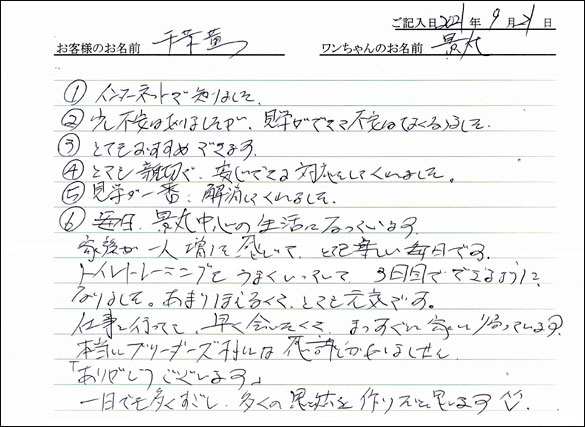 ご記入日 2021 年 9 月 21 日
お客様のお名前 千葉 ワンちゃんのお名前 景丸
① インターネットで知りました。
② 少し不安はありましたが、見学ができて不安はなくなりました。
③ とてもおすすめできます。
④ とても親切で、安心できる対応をしてくれました。
⑤ 見学が一番、解消してくれました。
⑥ 毎日、景丸中心の生活になっています。
家族が一人増えた感じで、とても楽しい毎日です。
トイレトレーニングもうまくいっていて、3日目でできるように
なりました。あまりほえなくて、とても元気です。
仕事に行ってても、早く会いたくて、まっすぐに家に帰っています。
本当にブリーダーズ さんには感謝しかありません
「ありがとうございます」
一日でも多くすごし、多くの思い出を作りたいと思います